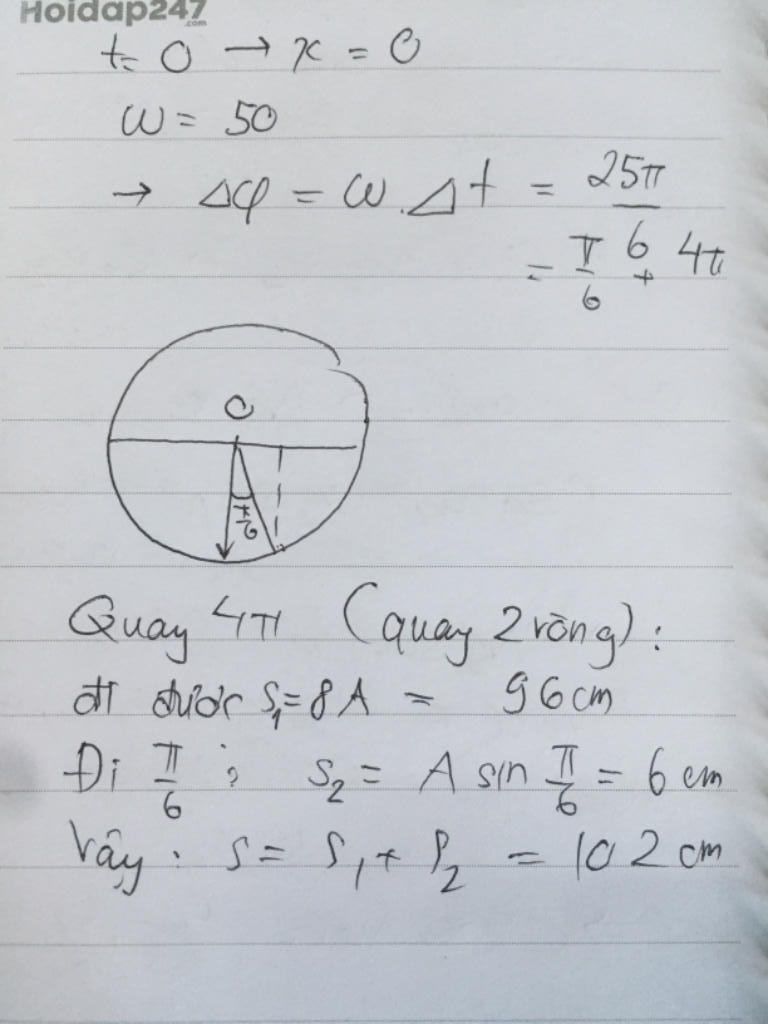 Hoidap247
.com
t = 0 → x = 0
ω = 50
→ Δφ = ω.Δt = 25π/6
= π/6 + 4π
O
π/6
Quay 4π (quay 2 vòng):
đi được S₁ = 8A = 96 cm
Đi π/6 : S₂ = A sin π/6 = 6 cm
Vậy : S = S₁ + S₂ = 102 cm